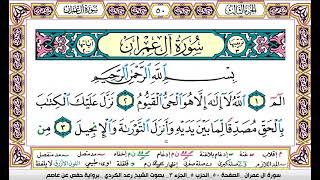 سُورَةُ آلِ عِمْرَان ٥٠ الجزء الثالث
سُورَةُ آلِ عِمْرَانَ
بِسْمِ ٱللَّهِ ٱلرَّحْمَٰنِ ٱلرَّحِيمِ
الٓمٓ ١ ٱللَّهُ لَآ إِلَٰهَ إِلَّا هُوَ ٱلْحَىُّ ٱلْقَيُّومُ ٢ نَزَّلَ عَلَيْكَ ٱلْكِتَٰبَ
بِٱلْحَقِّ مُصَدِّقًا لِّمَا بَيْنَ يَدَيْهِ وَأَنزَلَ ٱلتَّوْرَىٰةَ وَٱلْإِنجِيلَ ٣ مِن
سورة آل عمران - الصفحة ٥٠ - الحزب ٥ - الجزء ٣ - بصوت الشيخ رعد الكردي - برواية حفص عن عاصم